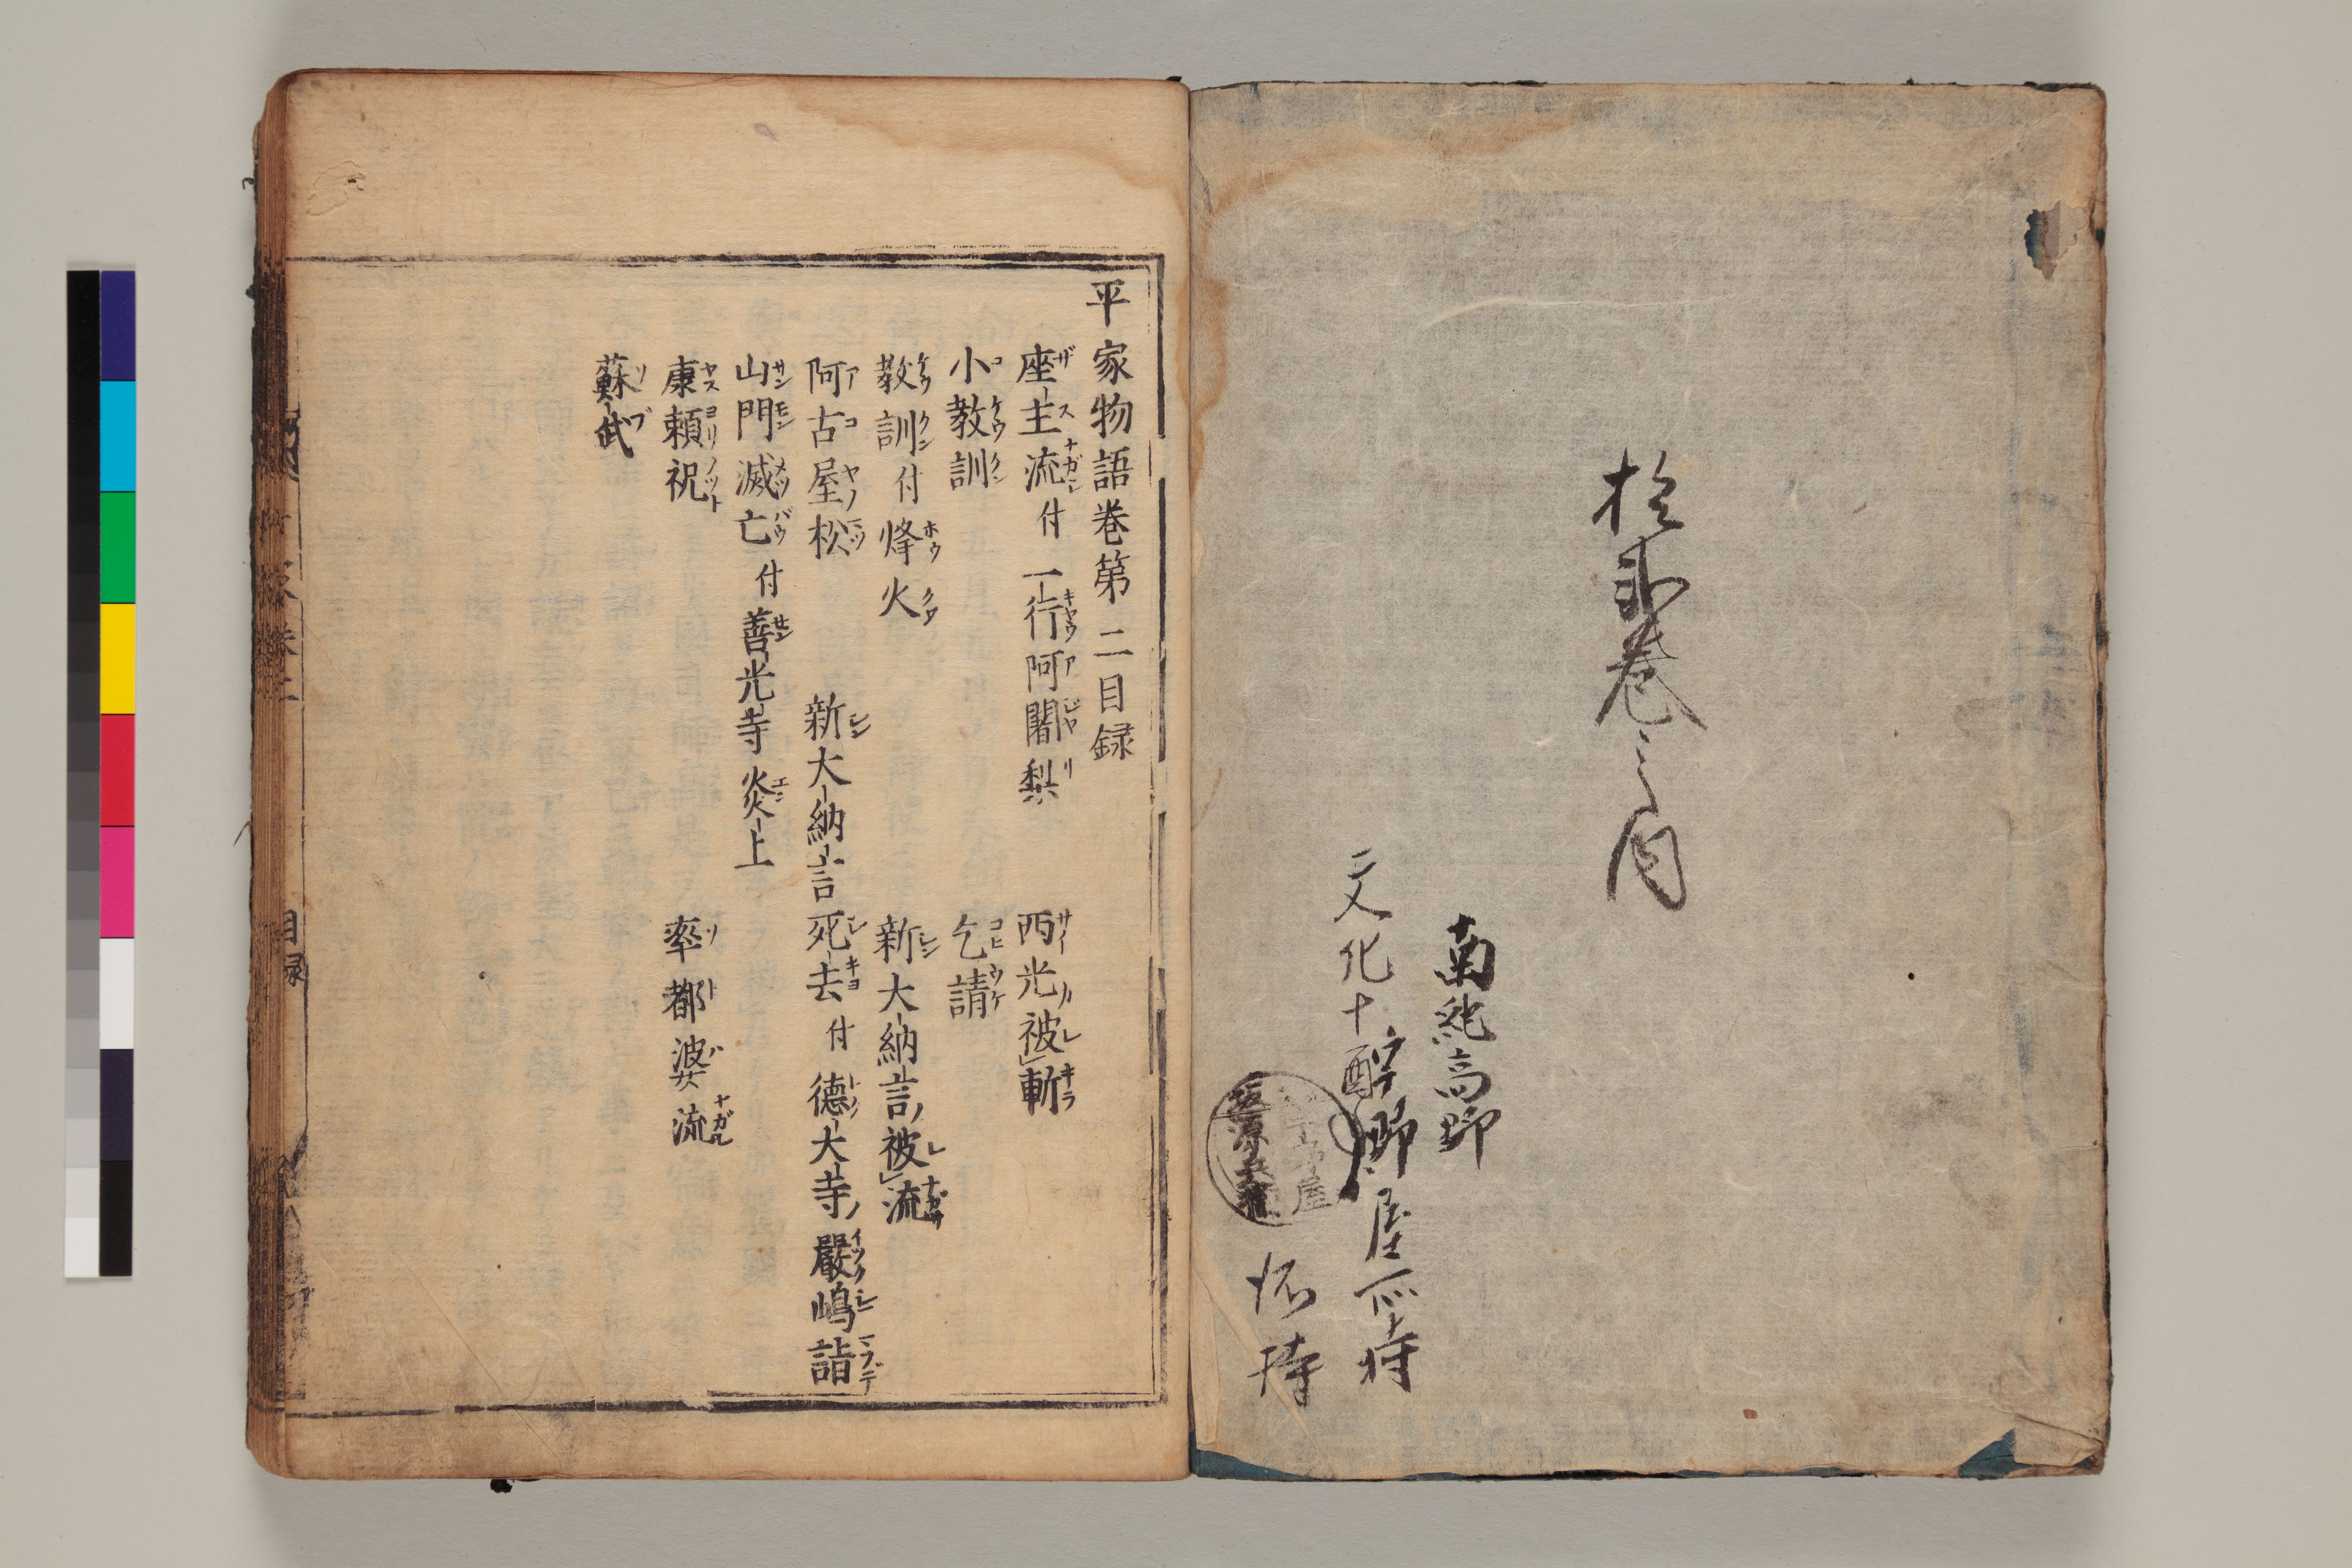 拾弐巻之内
南紀高野
文化十
屋所持
所持
平家物語巻第二目録
座主流付一行阿闍梨 西光被斬
小教訓 乞請
教訓付烽火 新大納言被流
阿古屋松 新大納言死去付徳大寺嚴嶋詣
山門滅亡付善光寺炎上
康頼祝 率都婆流
蘇武
目録